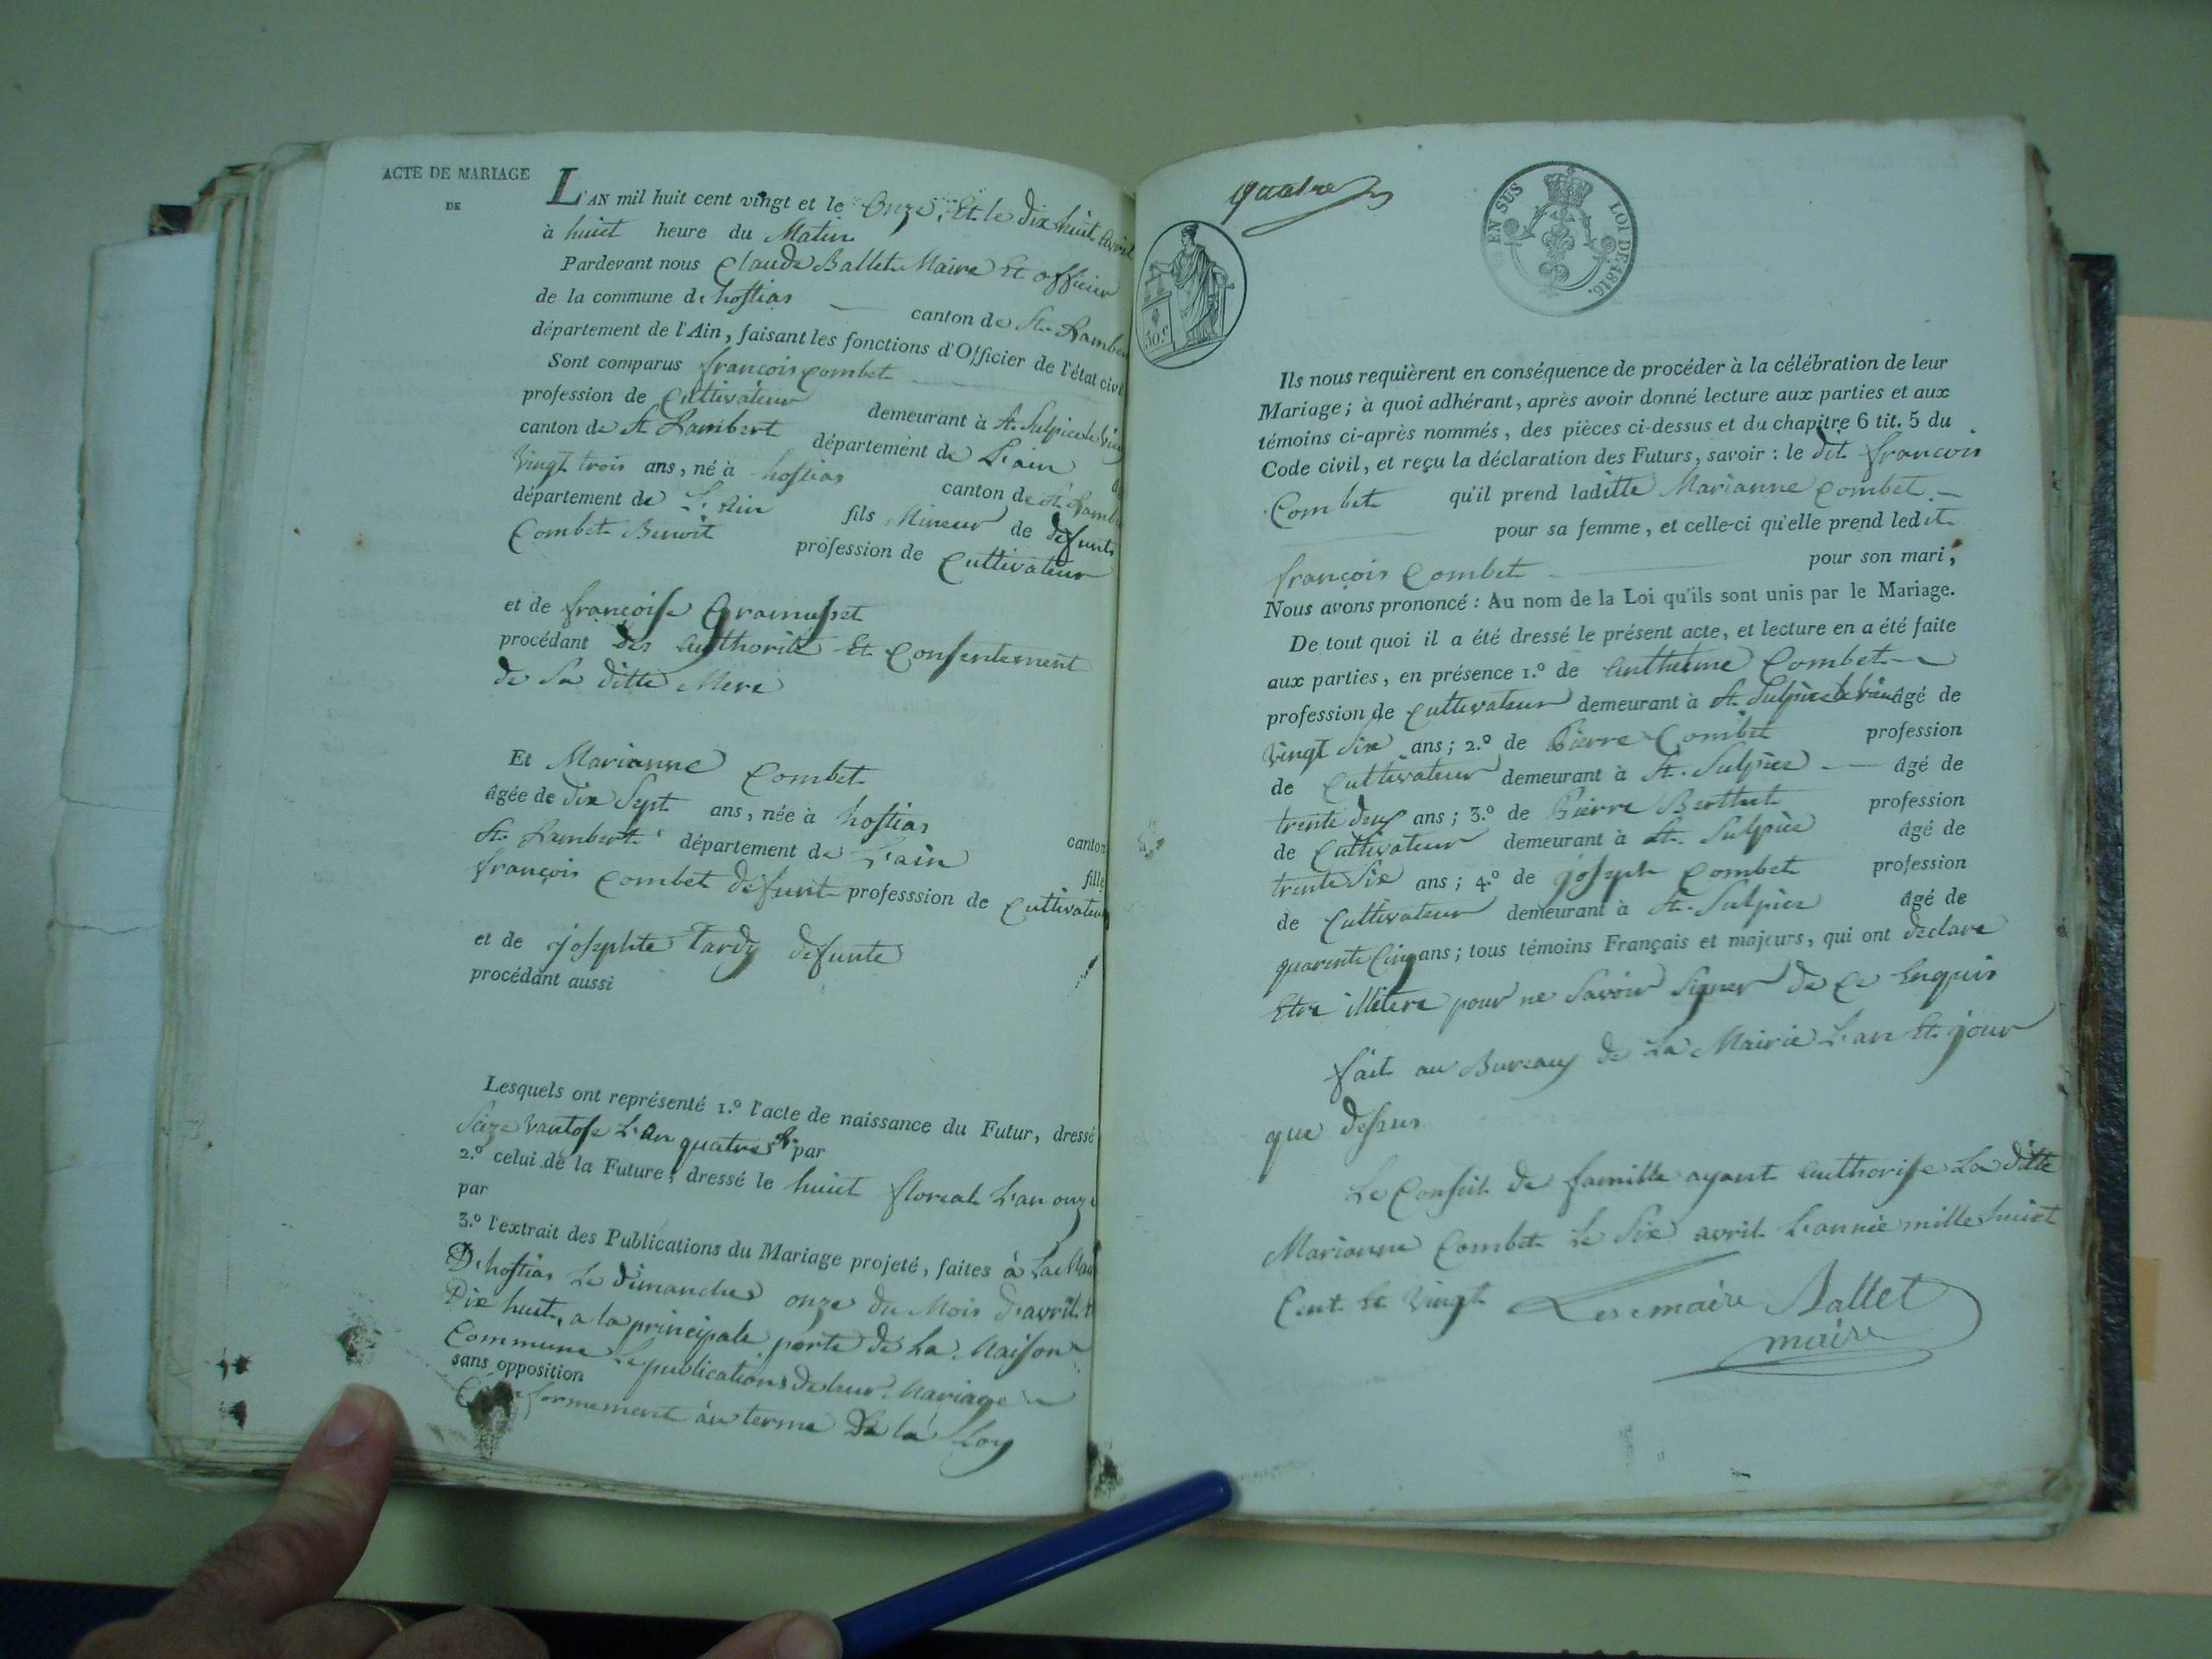 ACTE DE MARIAGE
DE
L'AN mil huit cent vingt et le Onze, Et le dix huit avril
à huict heure du Matin
Pardevant nous Claude Ballet Maire Et officier
de la commune de hostias — canton de St. Rambert
département de l'Ain, faisant les fonctions d'Officier de l'état civil
Sont comparus françois Combet
profession de Cultivateur demeurant à St. Sulpice le vieux
canton de St Rambert département de L'ain
Vingt trois ans, né à hostias canton de St. Rambert
département de L'Ain fils Mineur de defunts
Combet Benoit profession de Cultivateur
et de françoise Gramusset
procédant des authorité Et Consentement
de Sa ditte Mere
Et Marianne Combet
âgée de dix Sept ans, née à hostias canton
St. Rambert département de L'ain fille
françois Combet defunt professsion de Cultivateur
et de josephte Tardy defunte
procédant aussi
Lesquels ont représenté 1.º l'acte de naissance du Futur, dressé
Seize vantose L'an quatre par
2.º celui de la Future, dressé le huict floreal L'an onze
par
3.º l'extrait des Publications du Mariage projeté, faites à La
De hostias Le dimanche onze du Mois d'avril
Dix huit, a la principale porte de La Maison
Commune Les publications de leur Mariage
sans opposition
Conformement au terme De la Loy
quatre
EN SUS LOI DE 1816.
50.c
Ils nous requièrent en conséquence de procéder à la célébration de leur
Mariage; à quoi adhérant, après avoir donné lecture aux parties et aux
témoins ci-après nommés, des pièces ci-dessus et du chapitre 6 tit. 5 du
Code civil, et reçu la déclaration des Futurs, savoir : le dit françois
Combet qu'il prend laditte Marianne Combet —
pour sa femme, et celle-ci qu'elle prend ledit
françois Combet — pour son mari,
Nous avons prononcé : Au nom de la Loi qu'ils sont unis par le Mariage.
De tout quoi il a été dressé le présent acte, et lecture en a été faite
aux parties, en présence 1.º de Anthelme Combet
profession de Cultivateur demeurant à St. Sulpice le vieux âgé de
vingt Six ans; 2.º de Pierre Combet profession
de Cultivateur demeurant à St. Sulpice — âgé de
trente deux ans; 3.º de Pierre Berthet profession
de Cultivateur demeurant à St. Sulpice âgé de
trente Six ans; 4.º de joseph Combet profession
de Cultivateur demeurant à St. Sulpice âgé de
quarente Cinq ans; tous témoins Français et majeurs, qui ont declare
Etre illitere pour ne Savoir Signer de Ce Enquis
fait au Bureaux de La Mairie L'an Et jour
que dessus
Le Conseil de famille ayant authorise La ditte
Marianne Combet Le Six avril L'annee mille huict
Cent Et Vingt Ballet
maire